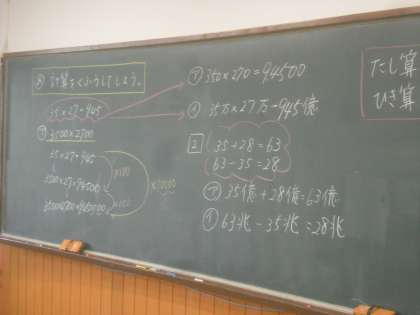 計算をくふうしてしよう。
35×27=945
㋐ 3500×2700
35×27=945
3500×27=94500
3500×2700=9450000
×100
×100
×10000
㋑ 350×270=94500
35万×27万=945億
2
35+28=63
63-35=28
㋐ 35億+28億=63億
㋑ 63兆-35兆=28兆
たし算
ひき算